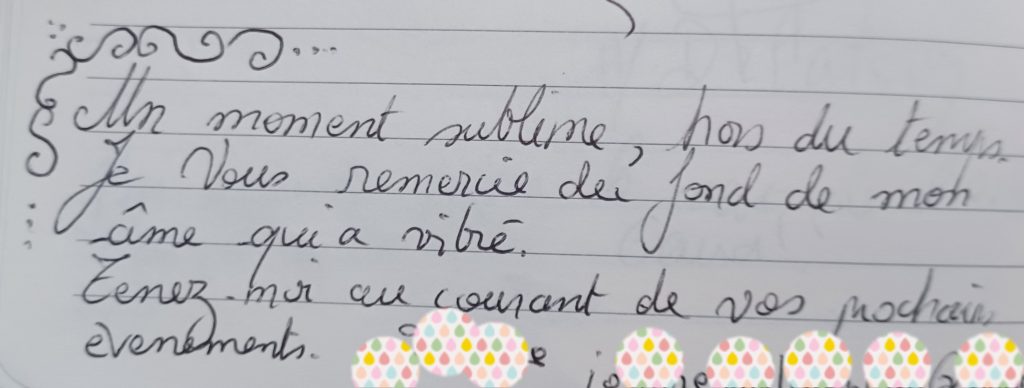 Un moment sublime, hors du temps.
Je vous remercie du fond de mon
âme qui a vibré.
Tenez-moi au courant de vos prochains
evenements.